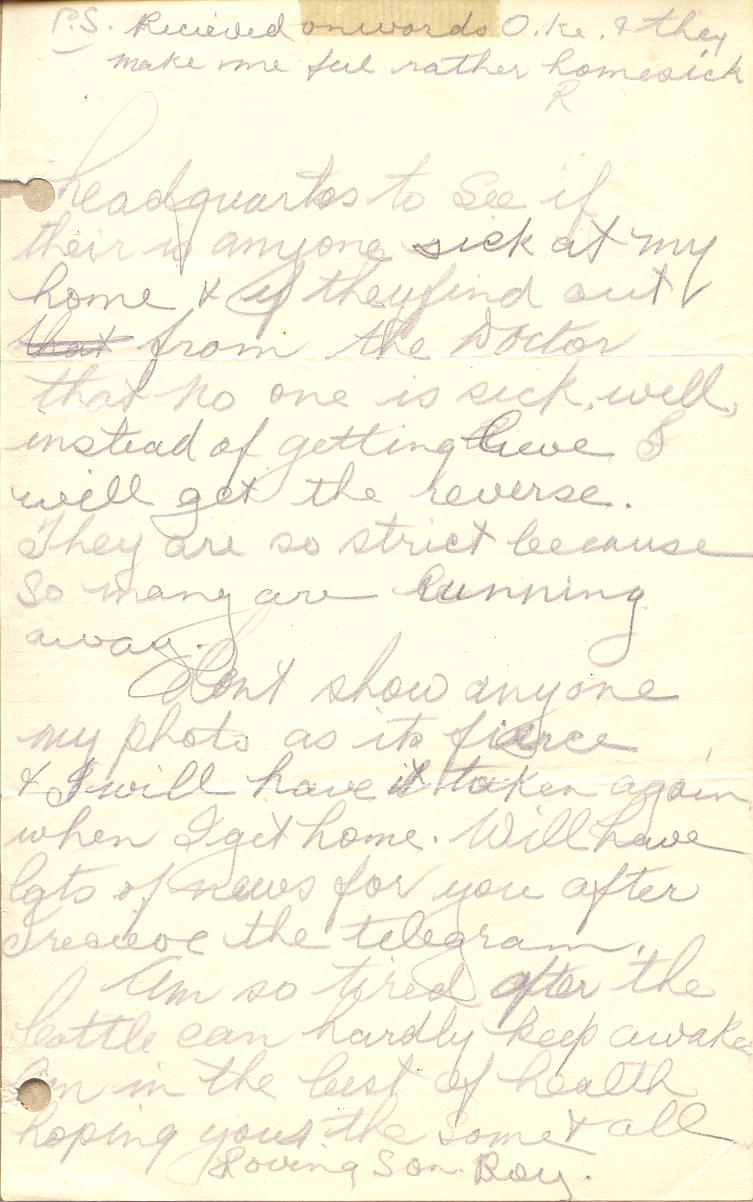 P.S. Recieved onwords O.Ke. & they
make me feel rather homesick
R
headquartes to see if
their is anyone sick at my
home & if they find out
that from the Doctor
that no one is sick, well,
instead of getting leeve I
will get the reverse.
They are so strict because
so many are running
away.
Dont show anyone
my photo as its fierce
& I will have it taken again
when I get home. Will have
lots of news for you after
I recieve the telegram.
Am so tired after the
battle can hardly keep awake
Am in the best of health
hoping your the same & all
Loving Son Roy.